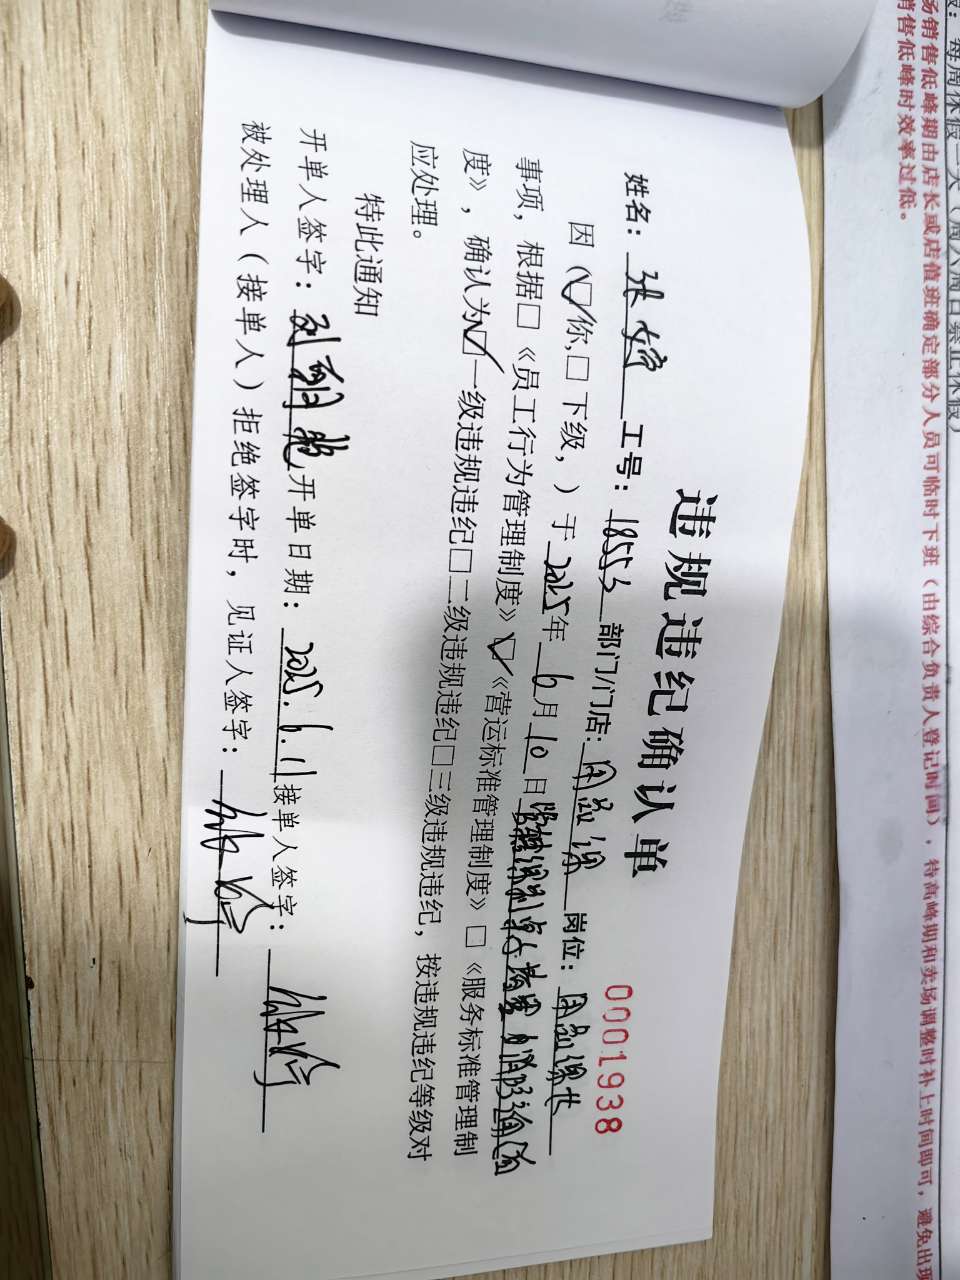 违规违纪确认单
0001938
姓名：张婷 工号：18553 部门/门店：用品课 岗位：用品课长
因（☑你，□下级，）于2025年6月10日
事项，根据□《员工行为管理制度》☑《营运标准管理制度》□《服务标准管理制
度》，确认为☑一级违规违纪□二级违规违纪□三级违规违纪，按违规违纪等级对
应处理。
特此通知
开单人签字： 开单日期：2025.6.11 接单人签字：
被处理人（接单人）拒绝签字时，见证人签字：
每周休假一天（周六周日禁止休假）
场销售低峰期由店长或店值班确定部分人员可临时下班（由综合负责人登记时间），待高峰期和卖场调整时补上时间即可，避免出现
销售低峰时效率过低。